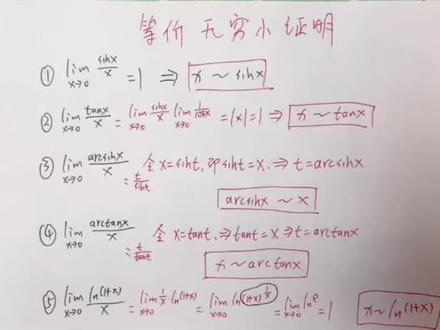 等价无穷小证明
① lim x→0 sinx/x = 1 ⇒ x ~ sinx
② lim x→0 tanx/x = lim x→0 sinx/x lim x→0 1/cosx = 1×1 = 1 ⇒ x ~ tanx
③ lim x→0 arcsinx/x 令 x=sint, 即sint=x. ⇒ t=arcsinx
= t/sint
arcsinx ~ x
④ lim x→0 arctanx/x 令 x=tant. ⇒ tant=x ⇒ t=arctanx
= t/tant
x ~ arctanx
⑤ lim x→0 ln(1+x)/x = lim x→0 1/x · ln(1+x) = lim x→0 ln(1+x)^(1/x) = lim x→0 ln e = 1 x ~ ln(1+x)